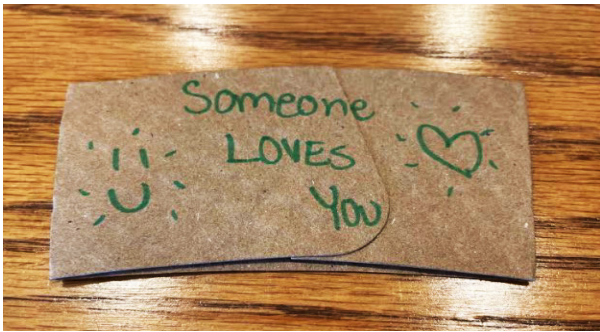 Someone
LOVES
You